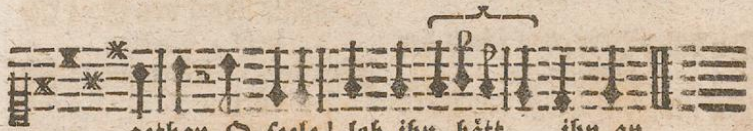 gethan O seele! lob ihn hätt ihn an